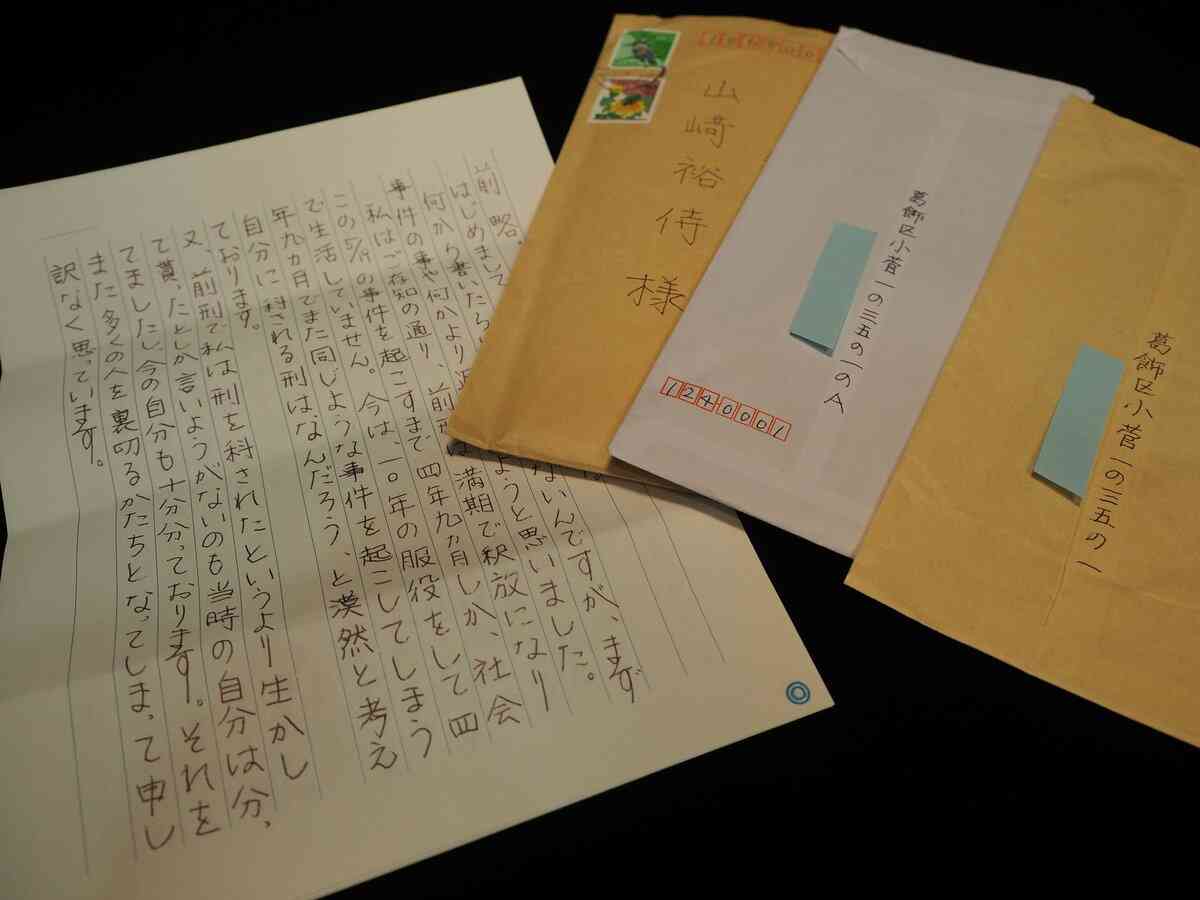 前略。
はじめまして
何から書いたら
ないんですが、まず
事件の事や何かより
ようと思いました。
私はご存知の通り、前刑は満期で釈放になり
この5/19の事件を起こすまで四年九ヵ月しか、社会
で生活していません。今は、一〇年の服役をして四
年九ヵ月でまた同じような事件を起こしてしまう
自分に科される刑はなんだろう、と漠然と考え
ております。
又、前刑で私は刑を科されたというより生かし
て貰ったとしか言いようがないのも当時の自分は分っ
てましたし、今の自分も十分分っております。それを
また多くの人を裏切るかたちとなってしまって申し
訳なく思っています。
山﨑裕侍様
葛飾区小菅一の三五の一のA
1240001
葛飾区小菅一の三五の一